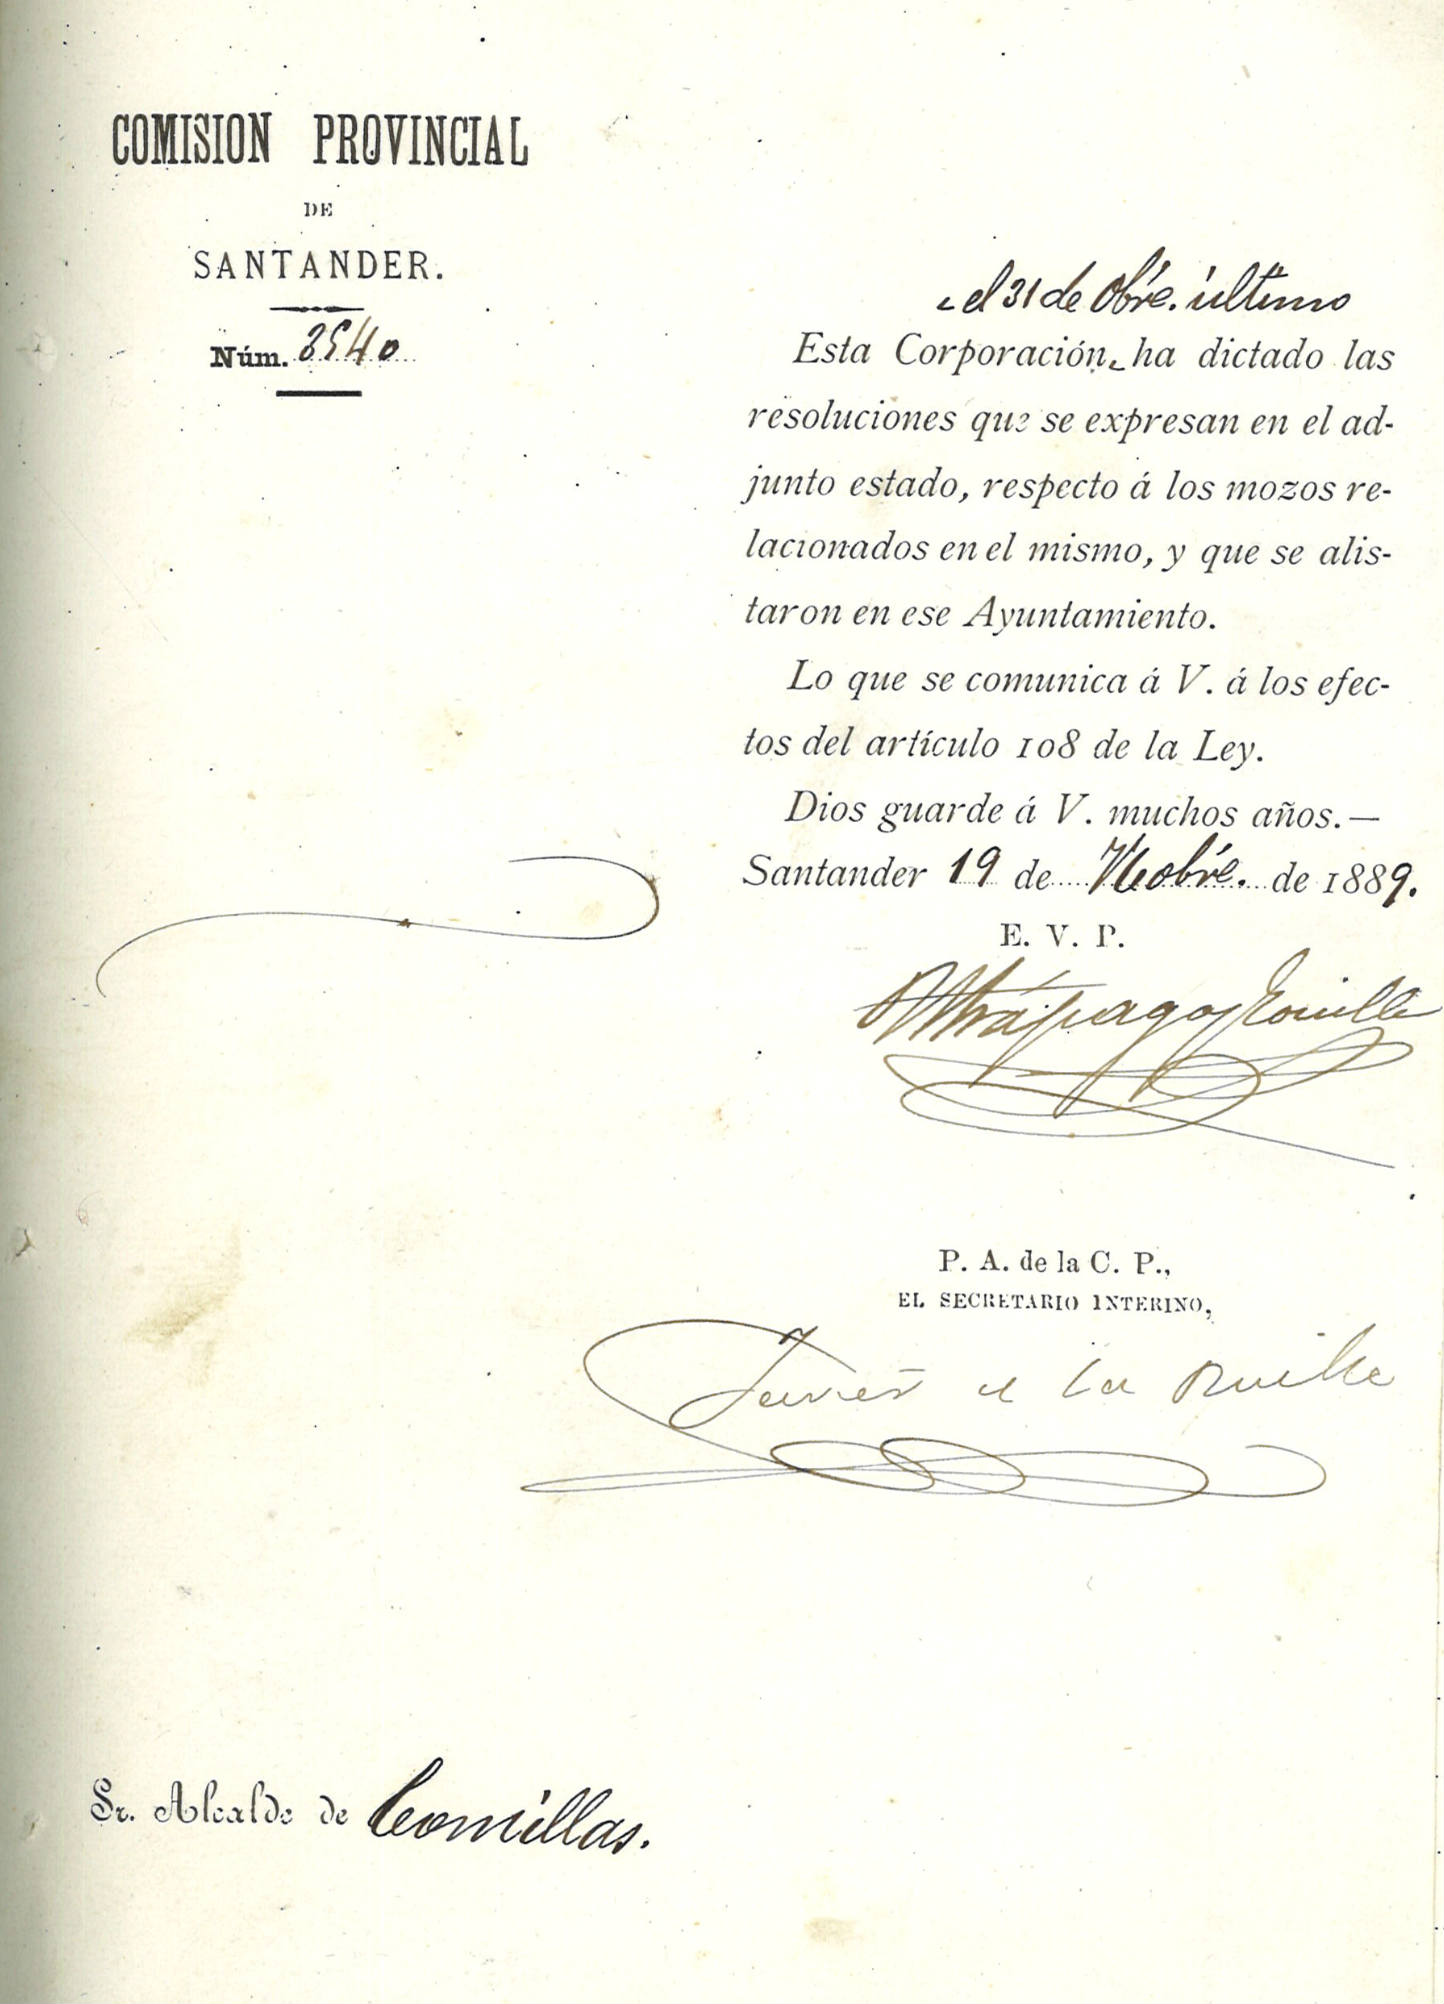 COMISION PROVINCIAL
DE
SANTANDER.
Núm. 3540
el 31 de Obre. último
Esta Corporación ha dictado las
resoluciones que se expresan en el ad-
junto estado, respecto á los mozos re-
lacionados en el mismo, y que se alis-
taron en ese Ayuntamiento.
Lo que se comunica á V. á los efec-
tos del artículo 108 de la Ley.
Dios guarde á V. muchos años.—
Santander 19 de Nobre. de 1889.
E. V. P.
P. A. de la C. P.,
EL SECRETARIO INTERINO,
Javier de la
Sr. Alcalde de Comillas.